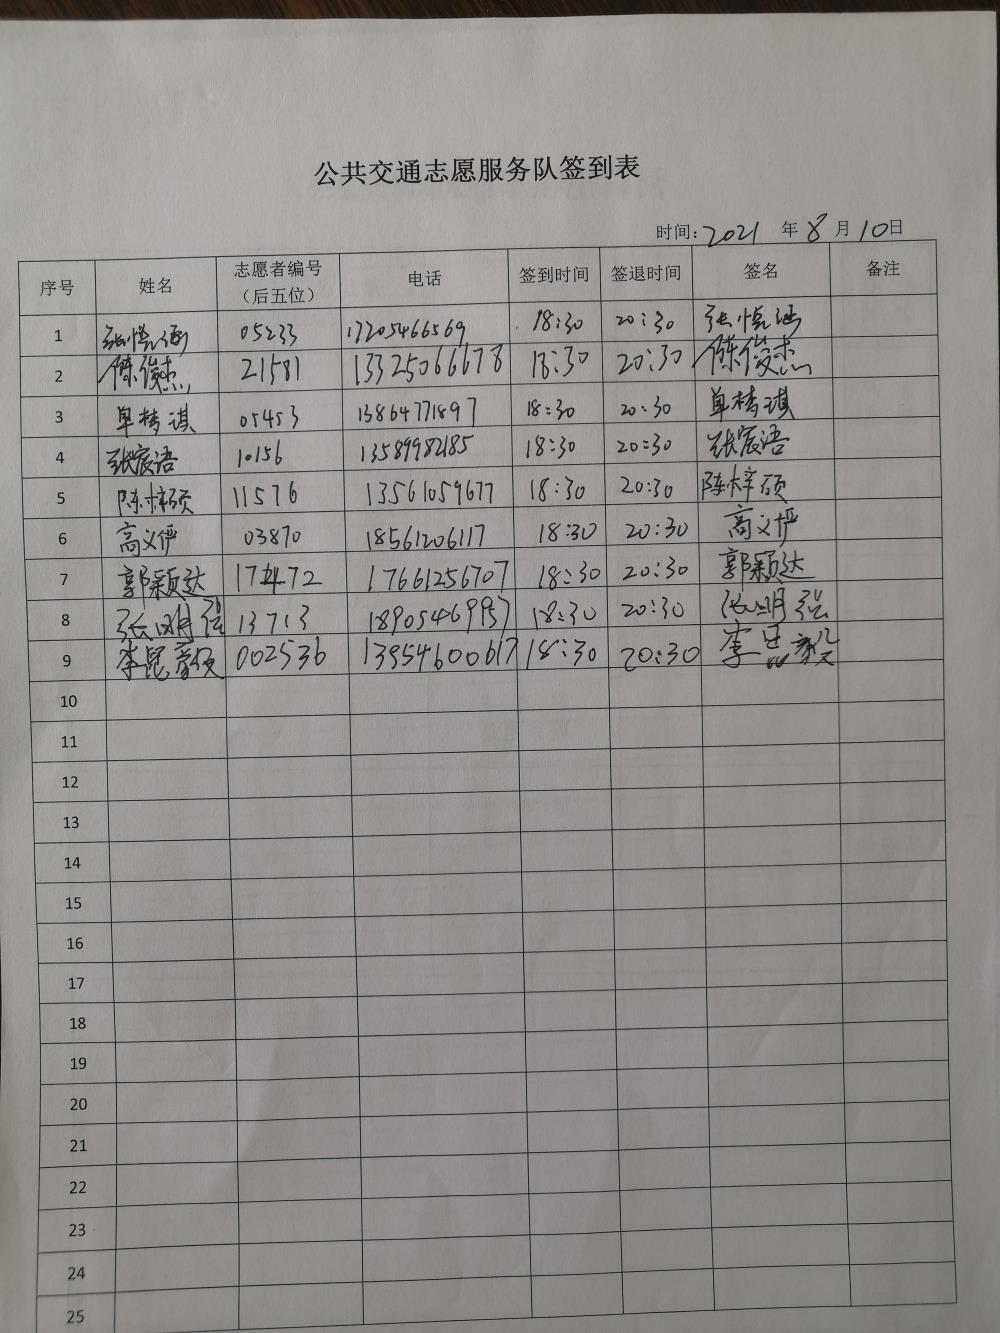 公共交通志愿服务队签到表
时间: 2021 年 8 月 10 日
序号 姓名 志愿者编号（后五位） 电话 签到时间 签退时间 签名 备注
1 张惜涵 05233 17205466569 18:30 20:30 张惜涵
2 陈俊杰 21581 13325066678 18:30 20:30 陈俊杰
3 单梦琪 05453 13864771897 18:30 20:30 单梦琪
4 张宸语 10156 13589982185 18:30 20:30 张宸语
5 陈梓硕 11576 13561059677 18:30 20:30 陈梓硕
6 高义俨 03870 18561206117 18:30 20:30 高义俨
7 郭颖达 17472 17661256707 18:30 20:30 郭颖达
8 张明弦 13713 18905469957 18:30 20:30 张明弦
9 李昆毅 002536 13954600617 18:30 20:30 李昆毅
10
11
12
13
14
15
16
17
18
19
20
21
22
23
24
25